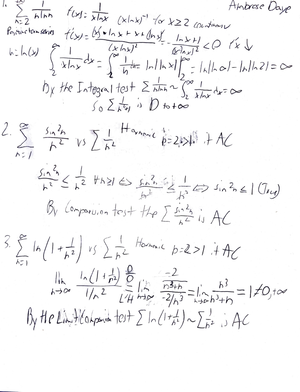 Ambrose Daye
1. ∞ Σ 1/(n ln n) f(x) = 1/(x lnx) (x lnx)⁻¹ for x≥2 continuous
f(x) = (x)'·lnx + x·(lnx)' / (x lnx)² = - (lnx+1)/(x lnx)² < 0 f↘
u=ln(x) ∫₂^∞ 1/(x lnx) dx = ∫₂^∞ = ln|lnx| |₂^∞ = ln|ln∞| - ln|ln2| = ∞
By the Integral test Σ 1/(n ln n) ~ ∫₂^∞ 1/(x lnx) dx = ∞
So Σ is D to +∞
2. Σ_{n=1}^∞ sin²n/n² vs Σ 1/n² Harmonic p=2>1 it AC
sin²n/n² ≤ 1/n² ∀n≥1 ⇔ sin²n/n² ≤ 1/n² ⇔ sin²n ≤ 1 (True)
By Comparison test the Σ sin²n/n² is AC
3. Σ_{n=1}^∞ ln(1+1/n²) vs Σ 1/n² Harmonic p=2>1 it AC
lim_{n→∞} ln(1+1/n²) / (1/n²) = 0/0 L'H lim_{n→∞} (-2/(n³+n)) / (-2/n³) = lim_{n→∞} n³/(n³+n) = 1 ≠ 0, +∞
By the Limit Comparison test Σ ln(1+1/n²) ~ Σ 1/n² is AC